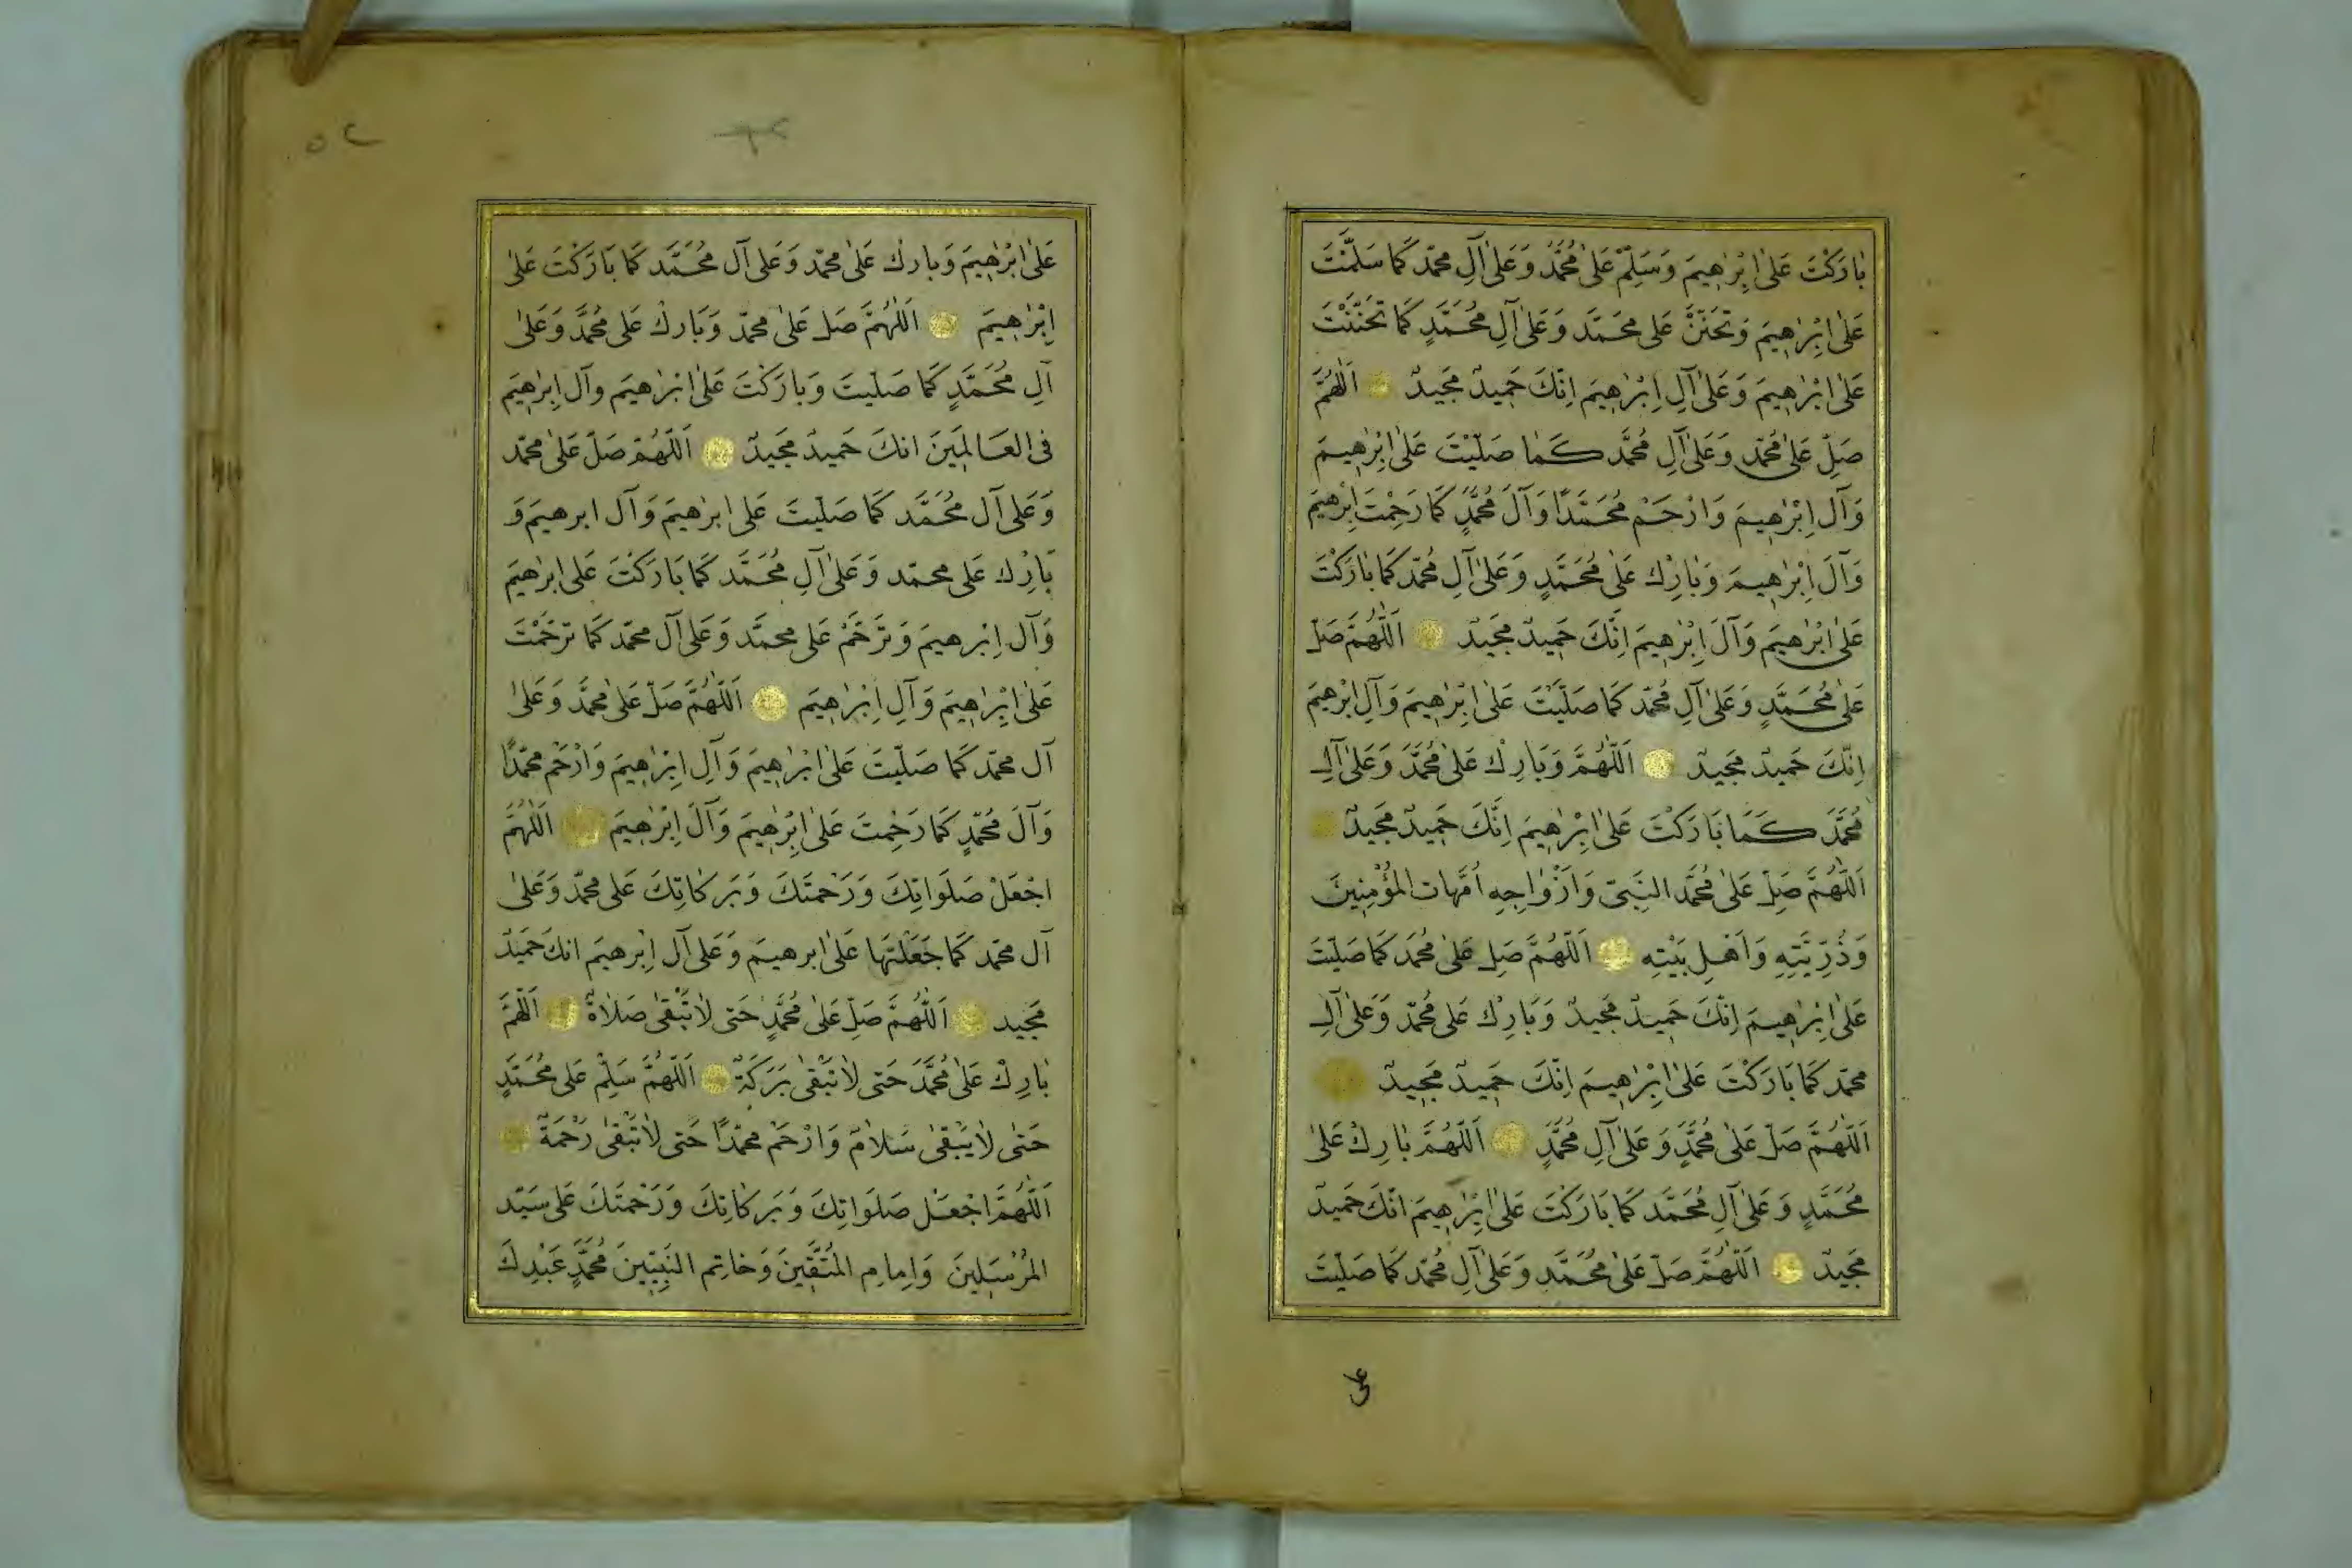 بَارَكْتَ عَلٰى اِبْرٰهِيمَ وَسَلِّمْ عَلٰى مُحَمَّدٍ وَعَلٰى آلِ مُحَمَّد كَمَا سَلَّمْتَ
عَلٰى اِبْرٰهِيمَ وَتَحَنَّنْ عَلٰى مُحَمَّدٍ وَعَلٰى آلِ مُحَمَّدٍ كَمَا تَحَنَّنْتَ
عَلٰى اِبْرٰهِيمَ وَعَلٰى آلِ اِبْرٰهِيمَ اِنَّكَ حَمِيدٌ مَجِيدٌ اَللّٰهُمَّ
صَلِّ عَلٰى مُحَمَّدٍ وَعَلٰى آلِ مُحَمَّدٍ كَمَا صَلَّيْتَ عَلٰى اِبْرٰهِيمَ
وَآلِ اِبْرٰهِيمَ وَارْحَمْ مُحَمَّدًا وَآلَ مُحَمَّدٍ كَمَا رَحِمْتَ اِبْرٰهِيمَ
وَآلَ اِبْرٰهِيمَ وَبَارِكْ عَلٰى مُحَمَّدٍ وَعَلٰى آلِ مُحَمَّد كَمَا بَارَكْتَ
عَلٰى اِبْرٰهِيمَ وَآلَ اِبْرٰهِيمَ اِنَّكَ حَمِيدٌ مَجِيدٌ اَللّٰهُمَّ صَلِّ
عَلٰى مُحَمَّدٍ وَعَلٰى آلِ مُحَمَّد كَمَا صَلَّيْتَ عَلٰى اِبْرٰهِيمَ وَآلِ اِبْرٰهِيمَ
اِنَّكَ حَمِيدٌ مَجِيدٌ اَللّٰهُمَّ وَبَارِكْ عَلٰى مُحَمَّدٍ وَعَلٰى آلِ
مُحَمَّدٍ كَمَا بَارَكْتَ عَلٰى اِبْرٰهِيمَ اِنَّكَ حَمِيدٌ مَجِيدٌ
اَللّٰهُمَّ صَلِّ عَلٰى مُحَمَّدٍ النَّبِيِّ وَاَزْوَاجِهِ اُمَّهَاتِ الْمُؤْمِنِينَ
وَذُرِّيَّتِهِ وَاَهْلِ بَيْتِهِ اَللّٰهُمَّ صَلِّ عَلٰى مُحَمَّدٍ كَمَا صَلَّيْتَ
عَلٰى اِبْرٰهِيمَ اِنَّكَ حَمِيدٌ مَجِيدٌ وَبَارِكْ عَلٰى مُحَمَّد وَعَلٰى آلِ
مُحَمَّد كَمَا بَارَكْتَ عَلٰى اِبْرٰهِيمَ اِنَّكَ حَمِيدٌ مَجِيدٌ
اَللّٰهُمَّ صَلِّ عَلٰى مُحَمَّدٍ وَعَلٰى آلِ مُحَمَّدٍ اَللّٰهُمَّ بَارِكْ عَلٰى
مُحَمَّدٍ وَعَلٰى آلِ مُحَمَّدٍ كَمَا بَارَكْتَ عَلٰى اِبْرٰهِيمَ اِنَّكَ حَمِيدٌ
مَجِيدٌ اَللّٰهُمَّ صَلِّ عَلٰى مُحَمَّدٍ وَعَلٰى آلِ مُحَمَّد كَمَا صَلَّيْتَ
على
٥٢
عَلٰى اِبْرٰهِيمَ وَبَارِكْ عَلٰى مُحَمَّد وَعَلٰى آلِ مُحَمَّد كَمَا بَارَكْتَ عَلٰى
اِبْرٰهِيمَ اَللّٰهُمَّ صَلِّ عَلٰى مُحَمَّد وَبَارِكْ عَلٰى مُحَمَّدٍ وَعَلٰى
آلِ مُحَمَّدٍ كَمَا صَلَّيْتَ وَبَارَكْتَ عَلٰى اِبْرٰهِيمَ وَآلِ اِبْرٰهِيمَ
فِى الْعَالَمِينَ اِنَّكَ حَمِيدٌ مَجِيدٌ اَللّٰهُمَّ صَلِّ عَلٰى مُحَمَّد
وَعَلٰى آلِ مُحَمَّد كَمَا صَلَّيْتَ عَلٰى اِبْرٰهِيمَ وَآلِ ابرهيمَ وَ
بَارِكْ عَلٰى مُحَمَّد وَعَلٰى آلِ مُحَمَّد كَمَا بَارَكْتَ عَلٰى اِبْرٰهِيمَ
وَآلِ اِبْرهيمَ وَتَرَحَّمْ عَلٰى مُحَمَّد وَعَلٰى آلِ مُحَمَّد كَمَا تَرَحَّمْتَ
عَلٰى اِبْرٰهِيمَ وَآلِ اِبْرٰهِيمَ اَللّٰهُمَّ صَلِّ عَلٰى مُحَمَّدٍ وَعَلٰى
آلِ مُحَمَّد كَمَا صَلَّيْتَ عَلٰى اِبْرٰهِيمَ وَآلِ اِبْرٰهِيمَ وَارْحَمْ مُحَمَّدًا
وَآلَ مُحَمَّدٍ كَمَا رَحِمْتَ عَلٰى اِبْرٰهِيمَ وَآلَ اِبْرٰهِيمَ اَللّٰهُمَّ
اجْعَلْ صَلَوَاتِكَ وَرَحْمَتَكَ وَبَرَكَاتِكَ عَلٰى مُحَمَّد وَعَلٰى
آلِ مُحَمَّد كَمَا جَعَلْتَهَا عَلٰى ابرهيمَ وَعَلٰى آلِ اِبْرهيمَ اِنَّكَ حَمِيدٌ
مَجِيد اَللّٰهُمَّ صَلِّ عَلٰى مُحَمَّدٍ حَتّٰى لَا تَبْقٰى صَلَاةٌ اَللّٰهُمَّ
بَارِكْ عَلٰى مُحَمَّدٍ حَتّٰى لَا تَبْقٰى بَرَكَةٌ اَللّٰهُمَّ سَلِّمْ عَلٰى مُحَمَّدٍ
حَتّٰى لَا يَبْقٰى سَلَامٌ وَارْحَمْ مُحَمَّدًا حَتّٰى لَا تَبْقٰى رَحْمَةٌ
اَللّٰهُمَّ اجْعَلْ صَلَوَاتِكَ وَبَرَكَاتِكَ وَرَحْمَتَكَ عَلٰى سَيِّدِ
الْمُرْسَلِينَ وَاِمَامِ الْمُتَّقِينَ وَخَاتِمِ النَّبِيِّينَ مُحَمَّدٍ عَبْدِكَ